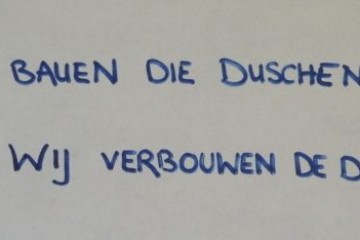 BAUEN DIE DUSCHEN
WIJ VERBOUWEN DE D